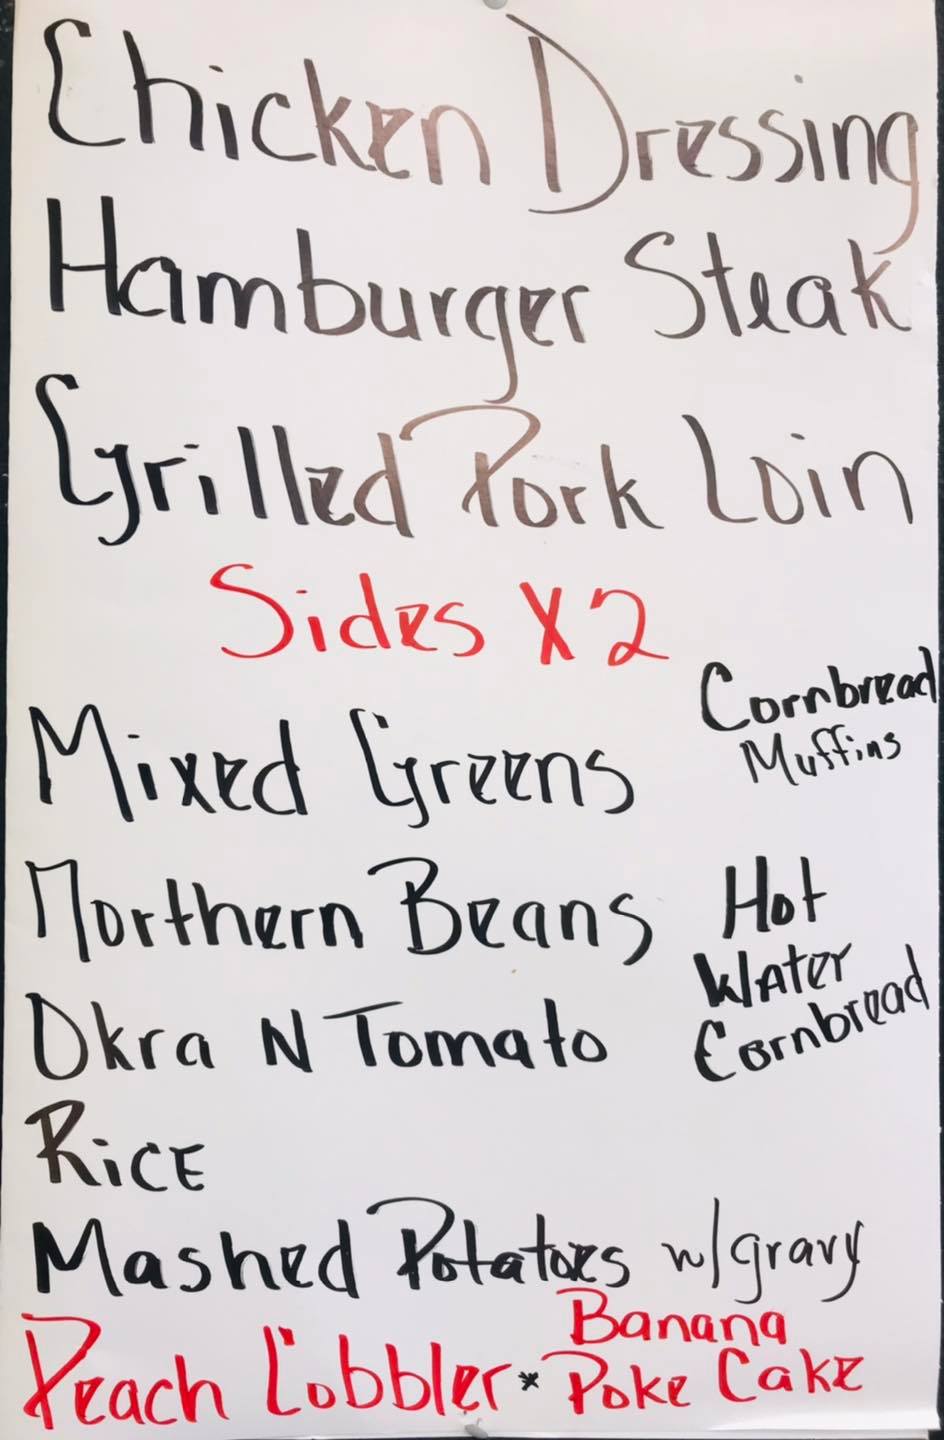 Chicken Dressing
Hamburger Steak
Grilled Pork Loin
Sides X2
Mixed Greens
Cornbread
Muffins
Northern Beans
Hot
Water
Cornbread
Okra N Tomato
Rice
Mashed Potatoes w/gravy
Peach Cobbler * Banana
Poke Cake